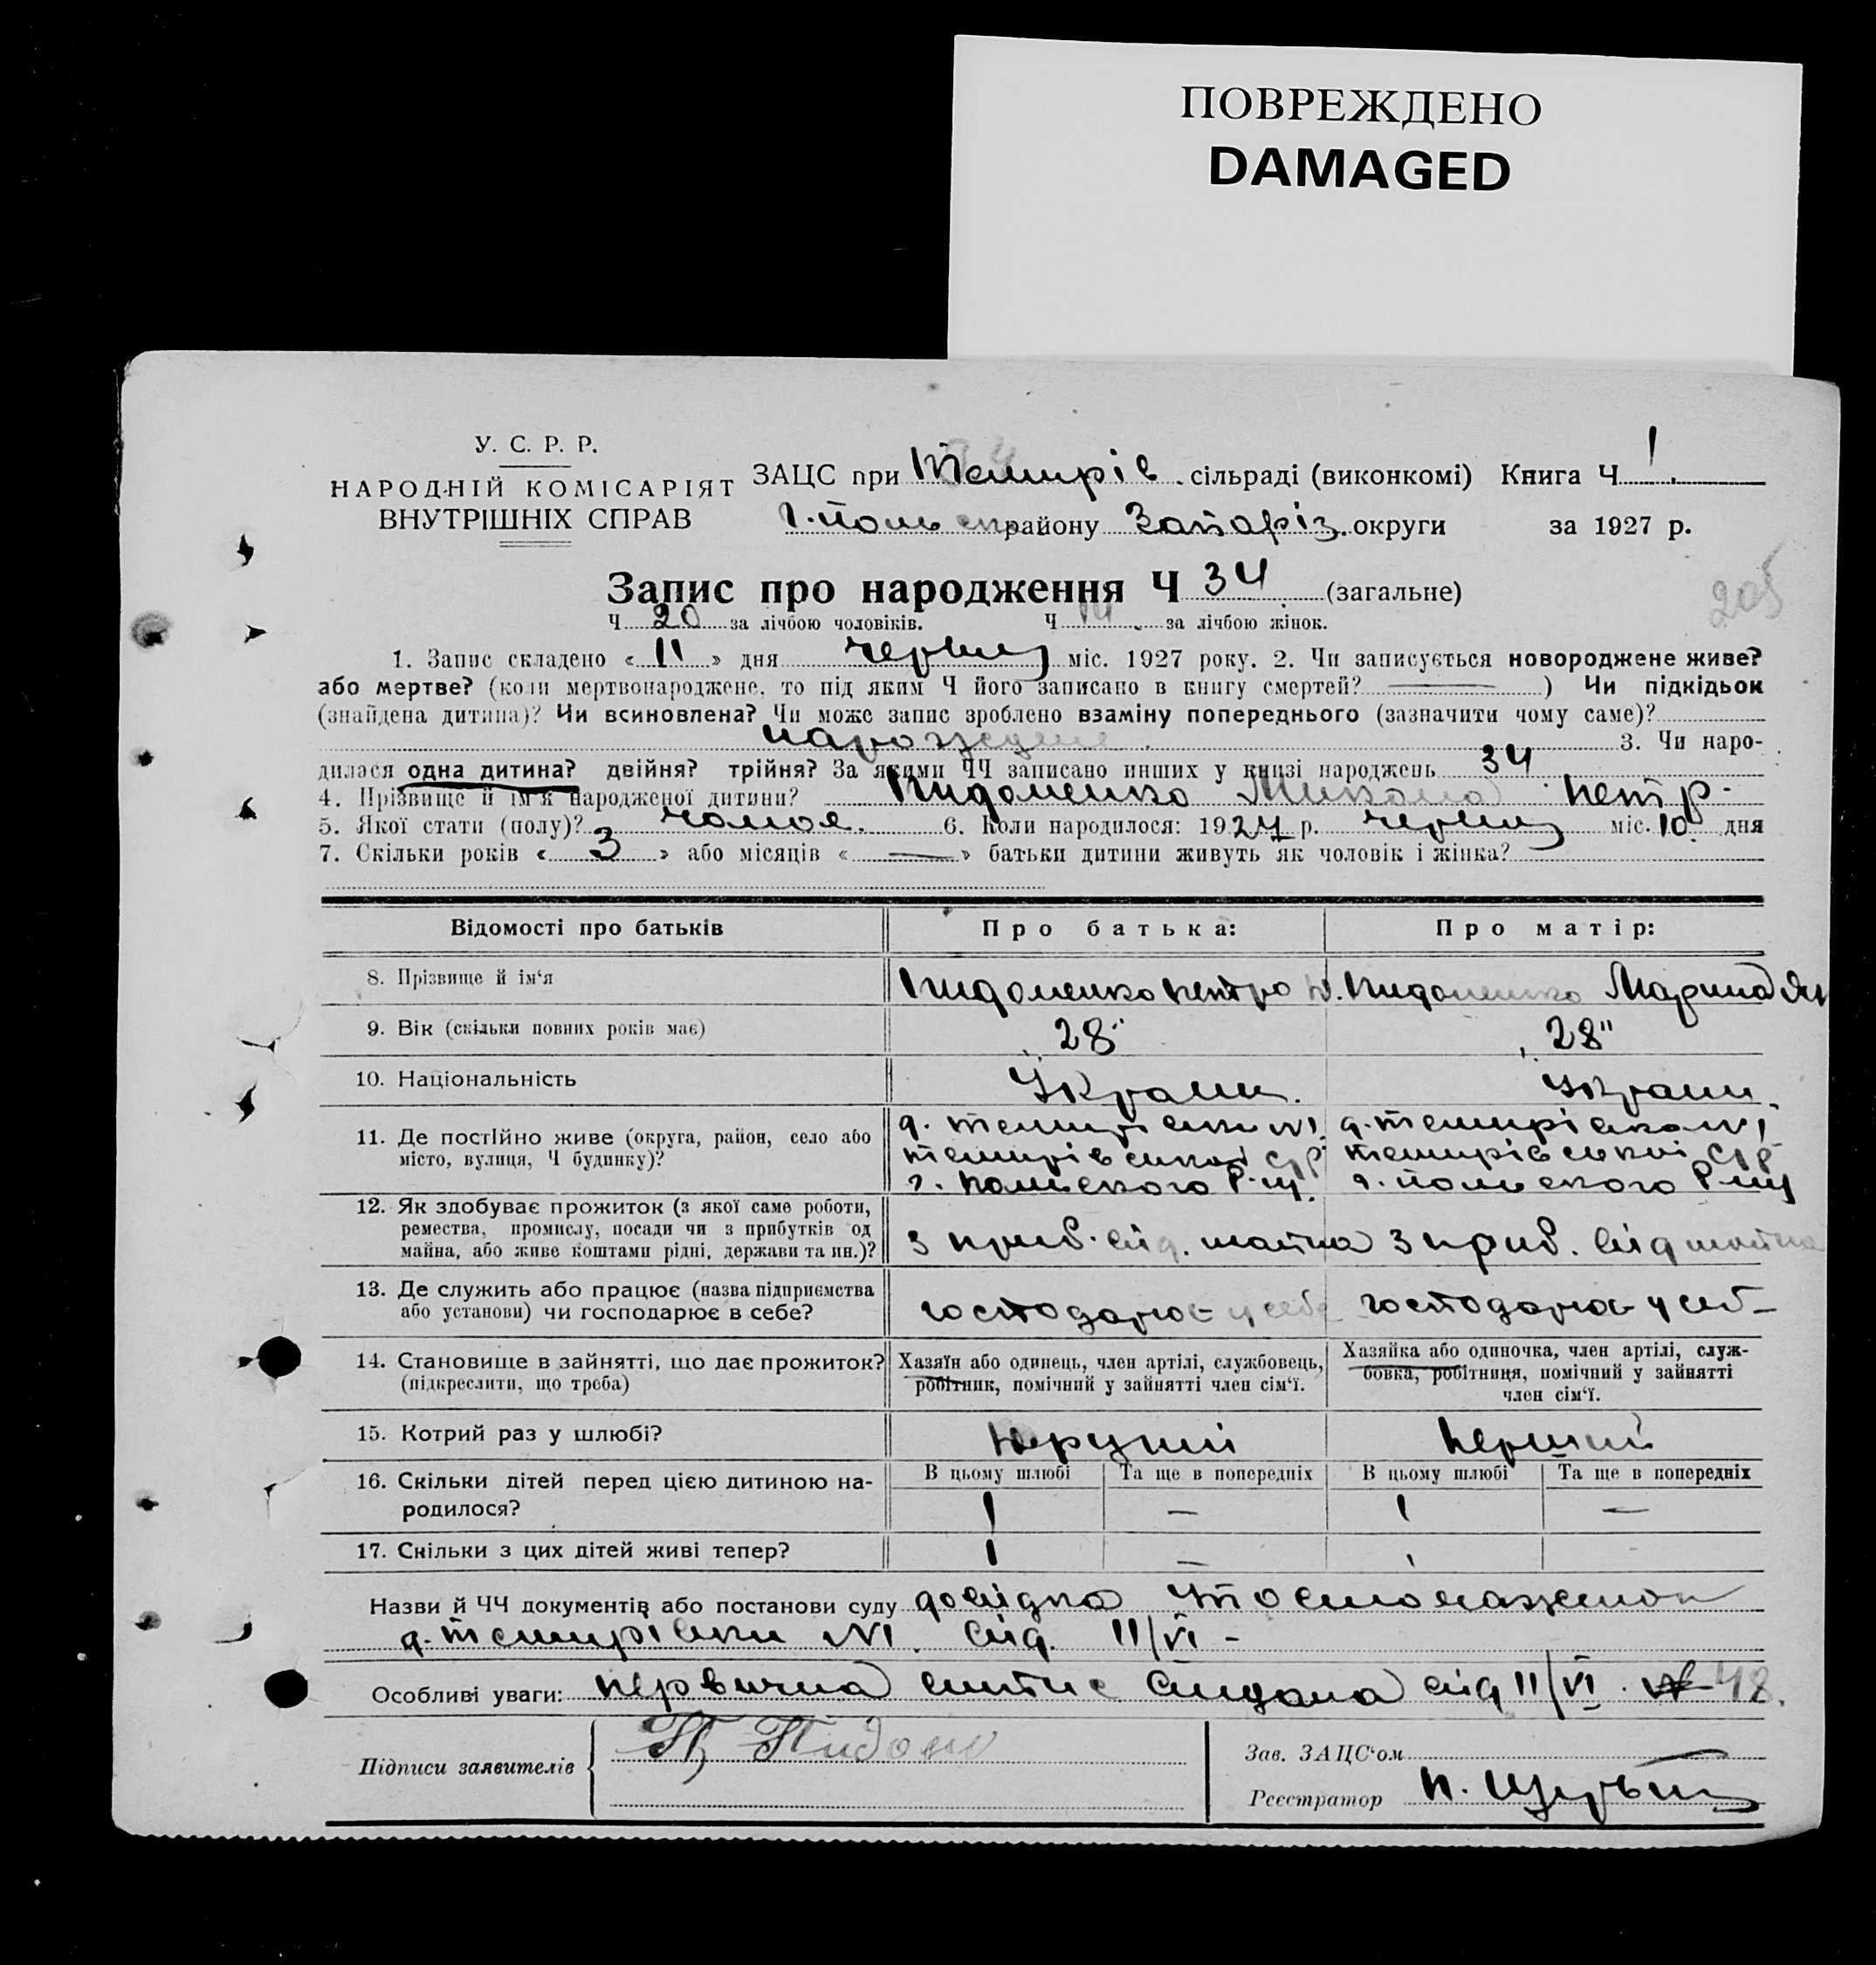 ПОВРЕЖДЕНО
DAMAGED
У. С. Р. Р.
НАРОДНІЙ КОМІСАРІЯТ
ВНУТРІШНІХ СПРАВ
ЗАЦС при Темирів. сільраді (виконкомі) Книга Ч 1
г. Польск району Запоріз. округи за 1927 р.
205
Запис про народження Ч 34 (загальне)
Ч 20 за лічбою чоловіків. Ч 14 за лічбою жінок.
1. Запис складено « 11 » дня червня міс. 1927 року. 2. Чи записується новороджене живе?
або мертве? (коли мертвонароджене, то під яким Ч його записано в книгу смертей? —) Чи підкідьок
(знайдена дитина)? Чи всиновлена? Чи може запис зроблено взаміну попереднього (зазначити чому саме)?
3. Чи наро-
дилася одна дитина? двійня? трійня? За якими ЧЧ записано инших у книзі народжень 34
4. Прізвище й ім'я народженої дитини? Пидоменко Микола Петр.
5. Якої стати (полу)? чолов. 6. Коли народилося: 1927 р. червня міс. 10 дня
7. Скільки років « 3 » або місяців « — » батьки дитини живуть як чоловік і жінка?
Відомості про батьків Про батька: Про матір:
8. Прізвище й ім'я Пидоменко Петро Пидоменко Марина
9. Вік (скільки повних років має) 28 28
10. Національність Украин. Украин.
11. Де постійно живе (округа, район, село або
місто, вулиця, Ч будинку)?
д. Темирівки №1 д. Темирівка №1
Темирівської С/р Темирівської С/р
г. Польского Р-ну г. Польского Р-ну
12. Як здобуває прожиток (з якої саме роботи,
ремества, промислу, посади чи з прибутків од
майна, або живе коштами рідні, держави та ин.)?
з приб. від. майна з приб. від майна
13. Де служить або працює (назва підприємства
або установи) чи господарює в себе?
господарює у себе господарює у себ
14. Становище в зайнятті, що дає прожиток?
(підкреслити, що треба)
Хазяїн або одинець, член артілі, службовець,
робітник, помічний у зайнятті член сім'ї.
Хазяйка або одиночка, член артілі, служ-
бовка, робітниця, помічний у зайнятті
член сім'ї.
15. Котрий раз у шлюбі? перший
16. Скільки дітей перед цією дитиною на-
родилося?
В цьому шлюбі Та ще в попередніх В цьому шлюбі Та ще в попередніх
1 — 1 —
17. Скільки з цих дітей живі тепер? 1 —
Назви й ЧЧ документів або постанови суду довідка
д. Темирівки №1. від. 11/VI -
Особливі уваги: первична видана від 11/VI. № 48.
Підписи заявителів П Пидом
Зав. ЗАЦС'ом
Реєстратор П.